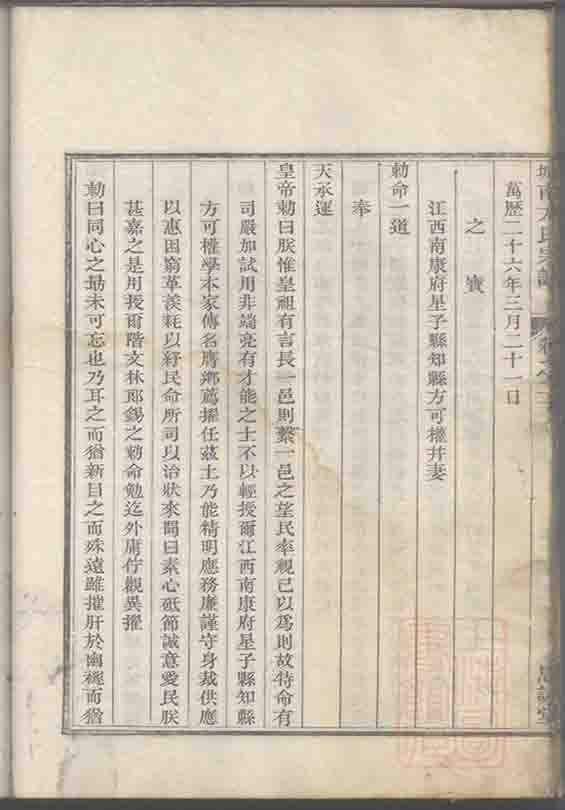 萬歷二十六年三月二十一日
之寶
江西南康府星子縣知縣方可權并妻
勅命一道
奉
天承運
皇帝勅曰朕惟皇祖有言長一邑則繫一邑之望民率視已以為則故特命有
司嚴加試用非端亮有才能之士不以輕授爾江西南康府星子縣知縣
方可權學本家傳名膺鄉薦擢任茲土乃能精明應務廉謹守身裁供應
以惠困窮革羨耗以紓民命所司以治狀來聞曰素心砥節誠意愛民朕
甚嘉之是用授爾階文林郎錫之勅命勉迄外庸佇觀異擢
勅曰同心之勗未可忘也乃耳之而猶新目之而殊遠雖摧肝於幽而猶